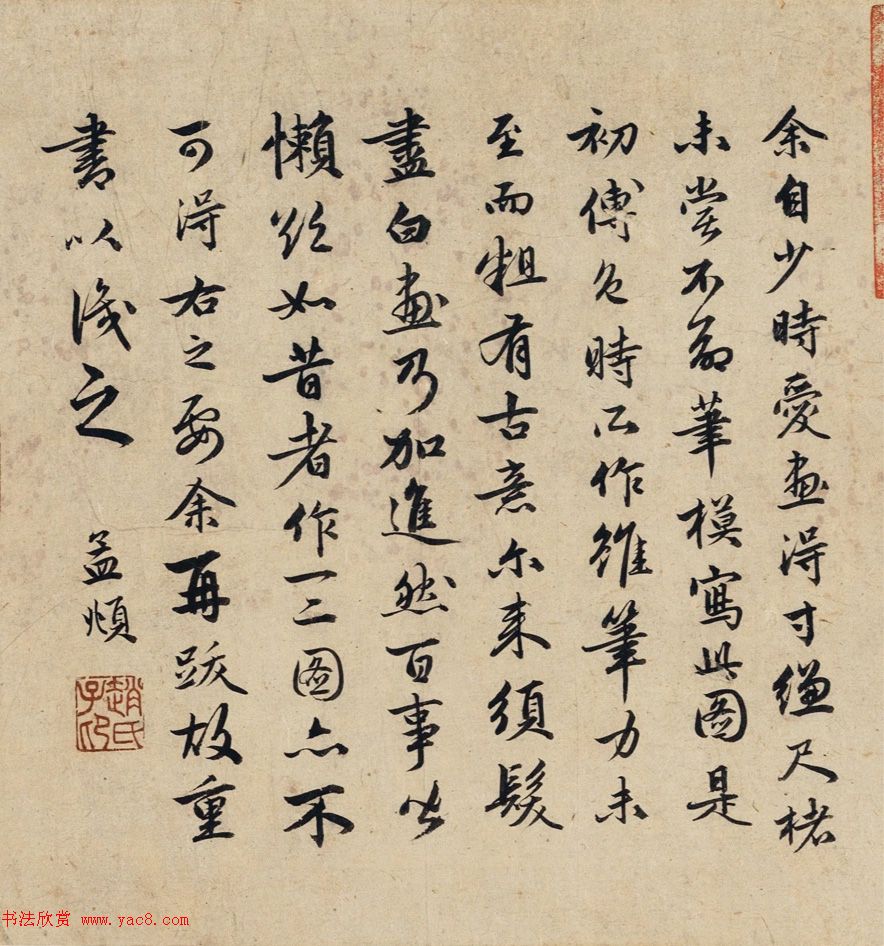 余自少時愛畫得寸縑尺楮
未嘗不命筆模寫此圖是
初傅色時所作雖筆力未
至而粗有古意尓来須髮
盡白畫乃加進然百事皆
懶欲如昔者作一二圖亦不
可得右之要余再跋故重
書以識之
孟頫
趙氏子昂
书法欣赏 www.yac8.com